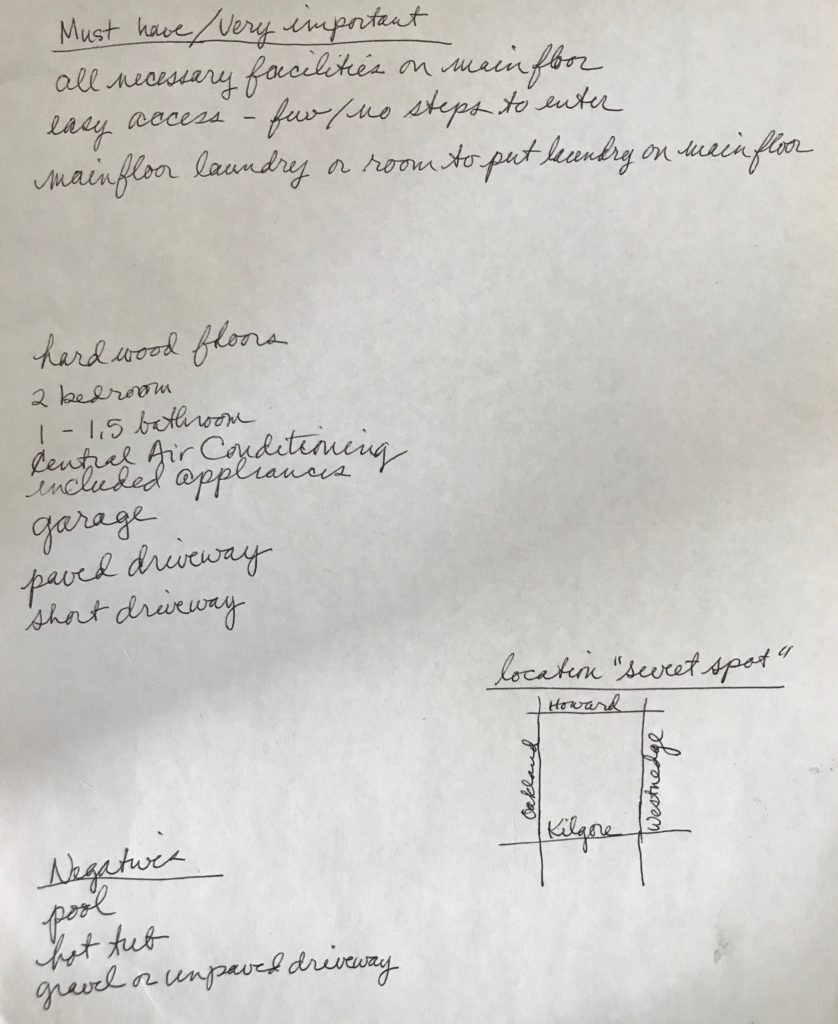 Must have/Very important
all necessary facilities on main floor
easy access - few/no steps to enter
mainfloor laundry or room to put laundry on main floor
hard wood floors
2 bedroom
1 - 1.5 bathroom
Central Air Conditioning
included appliances
garage
paved driveway
short driveway
location "sweet spot"
Howard
Oakland
Westnedge
Kilgore
Negatives
pool
hot tub
gravel or unpaved driveway